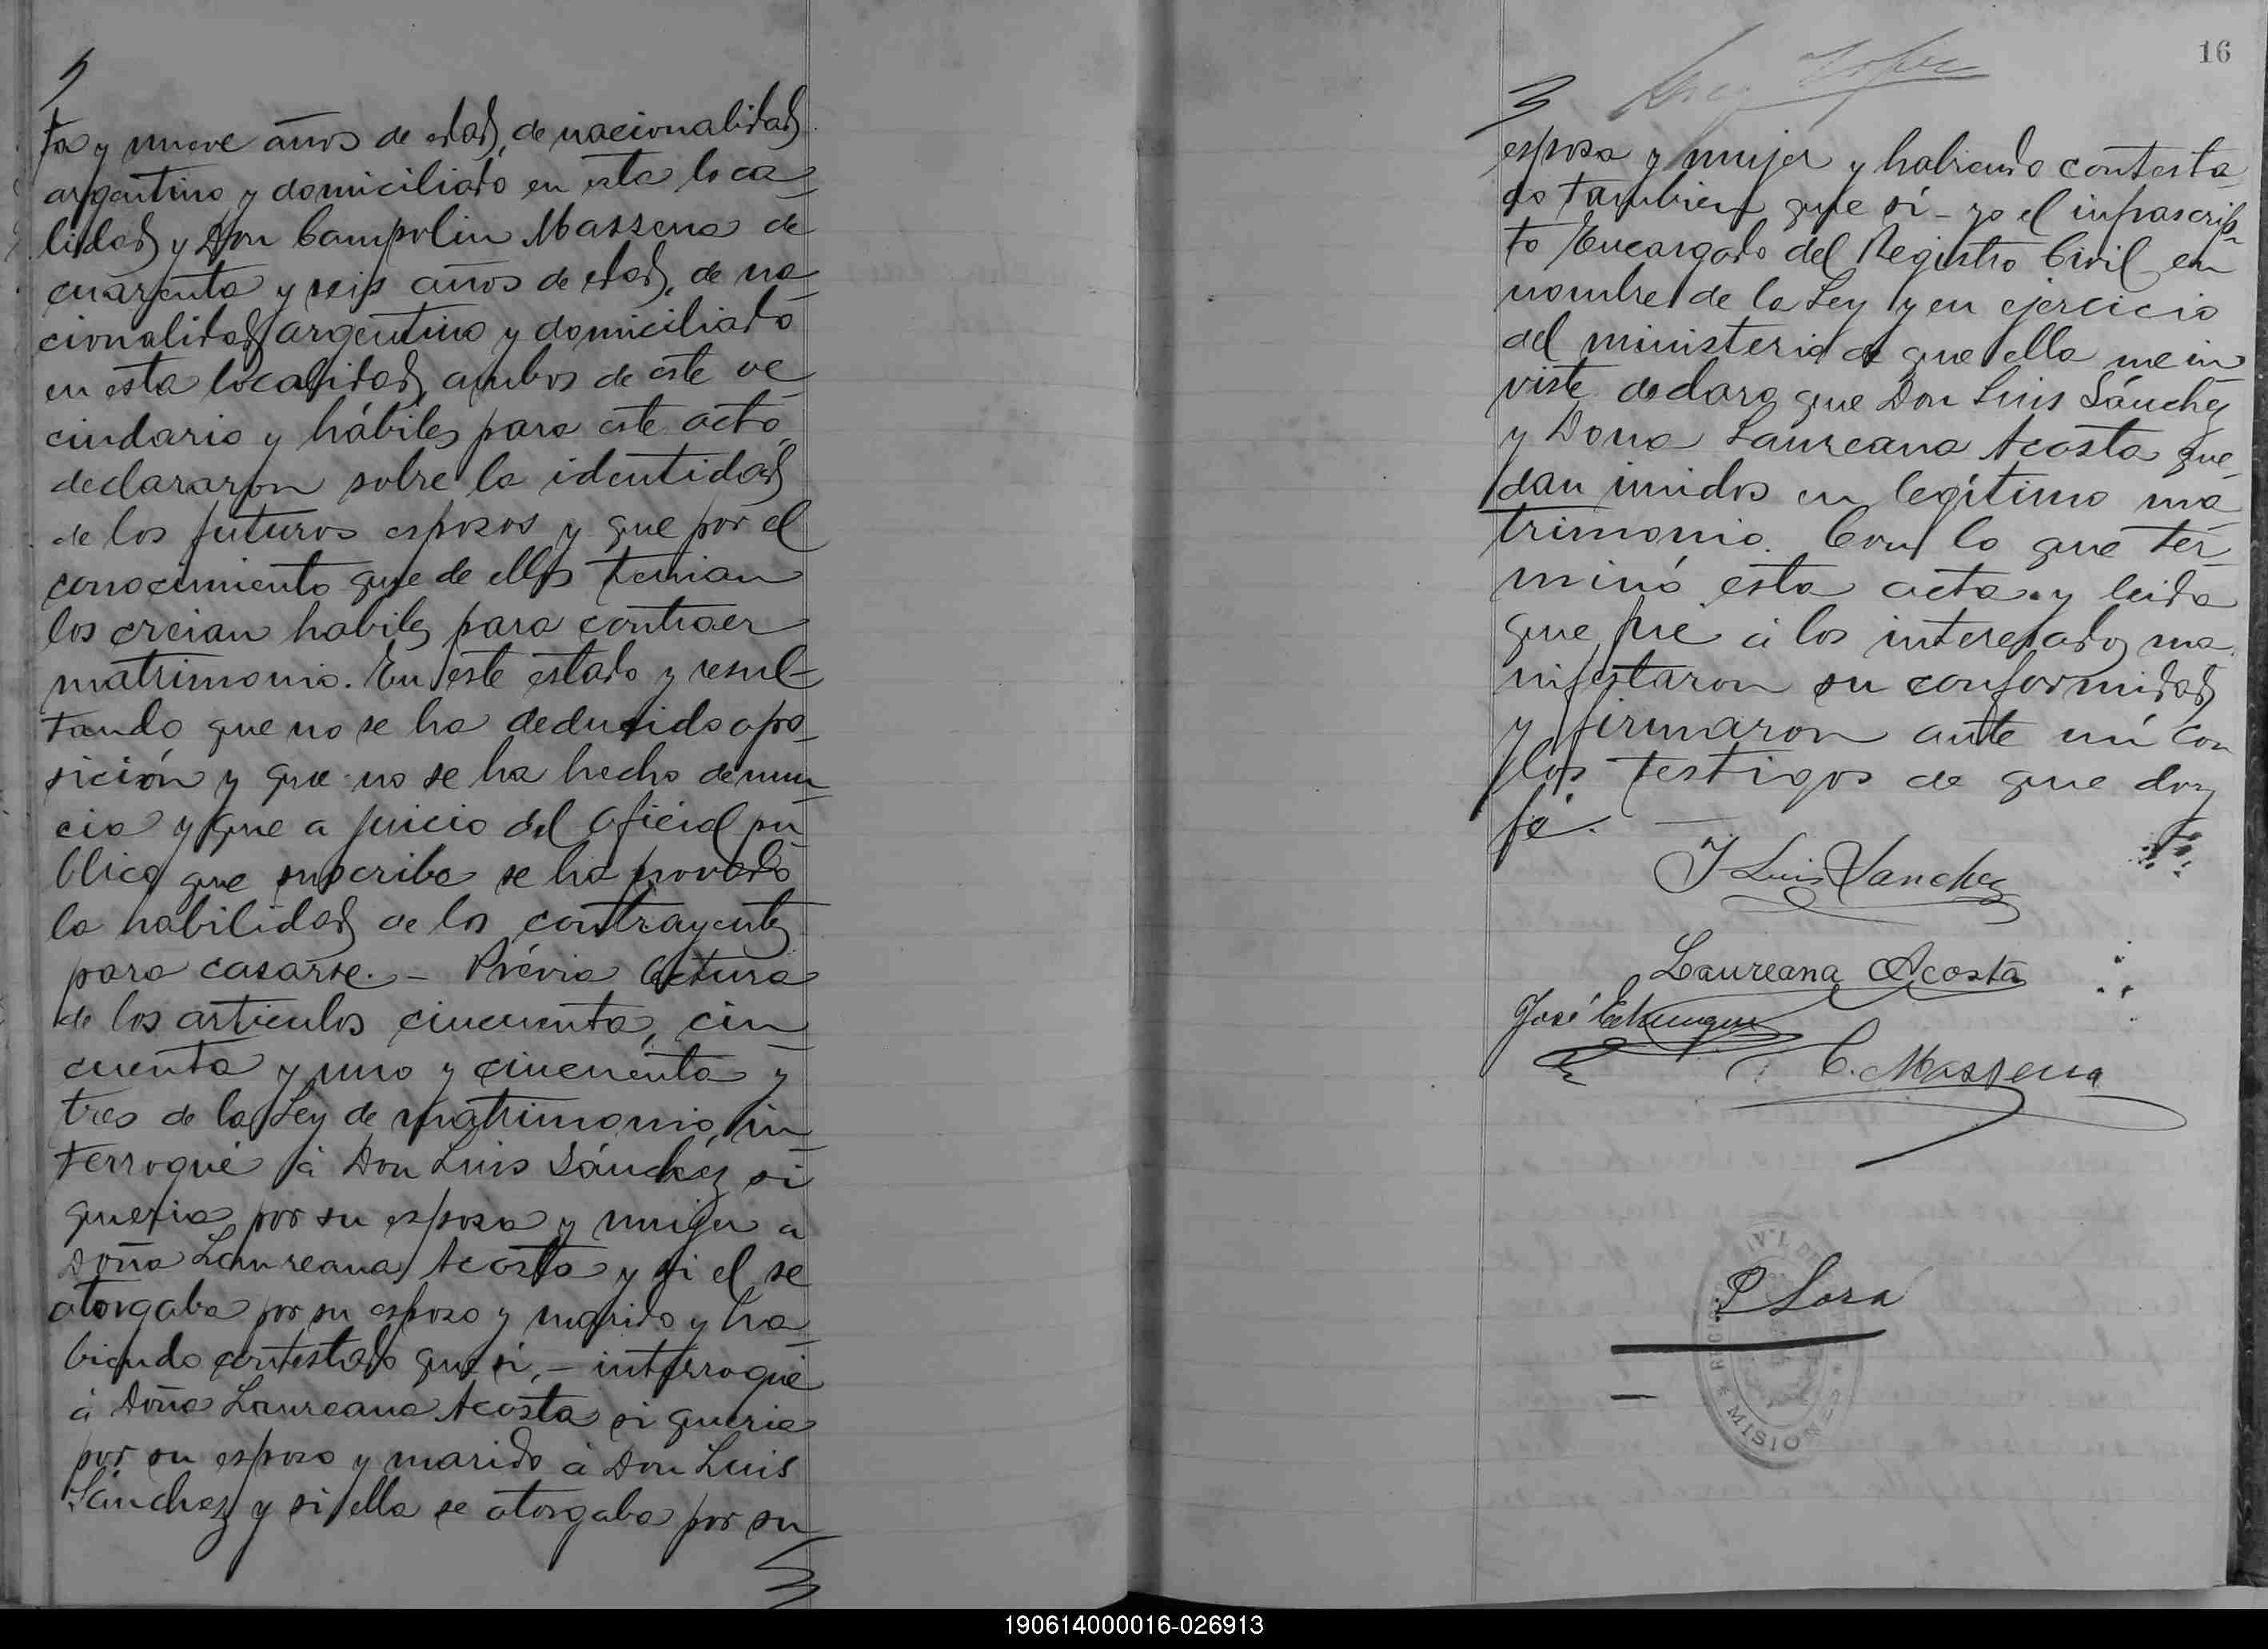 ta y nueve años de edad, de nacionalidad
argentino y domiciliado en esta loca
lidad y Don Campolin Massena de
cuarenta y seis años de edad, de na
cionalidad argentino y domiciliado
en esta localidad, ambos de este ve
cindario y hábiles para este acto,
declararon sobre la identidad
de los futuros esposos y que por el
conocimiento que de ellos tenian
los creian habiles para contraer
matrimonio. En este estado y resul-
tando que no se ha deducido opo-
sición y que no se ha hecho denun
cia y que a juicio del oficial pú
blico que suscribe se ha provado
la habilidad de los contrayentes
para casarse. – Prévia lectura
de los articulos cincuenta, cin
cuenta y uno y cincuenta y
tres de la Ley de matrimonio, in
terrogué à Don Luis Sánchez si
queria por su esposa y mujer a
Doña Laureana Acosta y si el se
otorgaba por su esposo y marido y ha
biendo contestado que si, – interrogué
á Doña Laureana Acosta si queria
por su esposo y marido á Don Luis
Sánchez y si ella se otorgaba por su
16
esposa y mujer y habiendo contesta
do tambien que si – yo el infrascrip
to Encargado del Registro Civil en
nombre de la Ley y en ejercicio
del ministerio de que ella me in
viste declaro que Don Luis Sánchez
y Dona Laureana Acosta que
dan unidos en legítimo ma
trimonio. Con lo que ter
minó esta acta y leida
que fué á los interesados ma
nifestaron su conformidad
y firmaron ante mí con
los testigos de que doy
fé. –
J Luis Sanchez
Laureana Acosta
José
C. Massena
P Losa
MISIONES
190614000016-026913